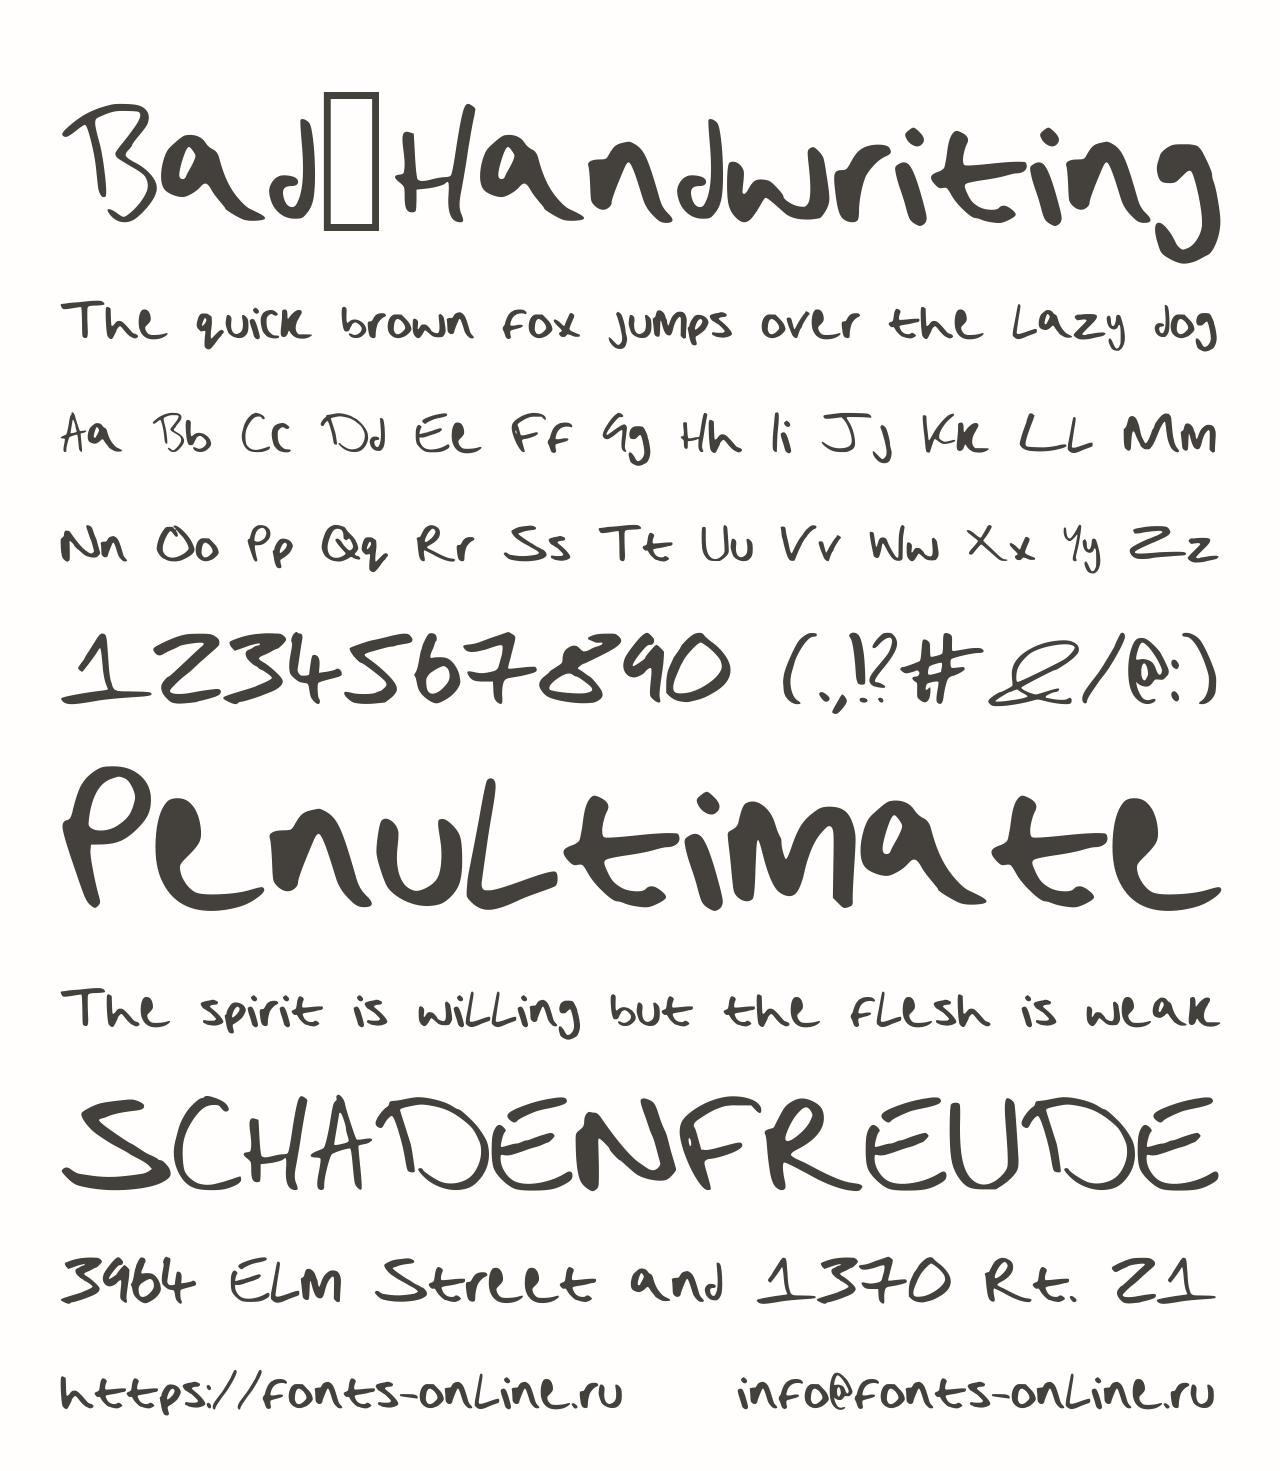 Bad▯Handwriting
The quick brown fox jumps over the lazy dog
Aa Bb Cc Dd Ee Ff Gg Hh Ii Jj Kk Ll Mm
Nn Oo Pp Qq Rr Ss Tt Uu Vv Ww Xx Yy Zz
1234567890 (.,!?#&/@:)
Penultimate
The spirit is willing but the flesh is weak
SCHADENFREUDE
3964 Elm Street and 1370 Rt. 21
https://fonts-online.ru info@fonts-online.ru